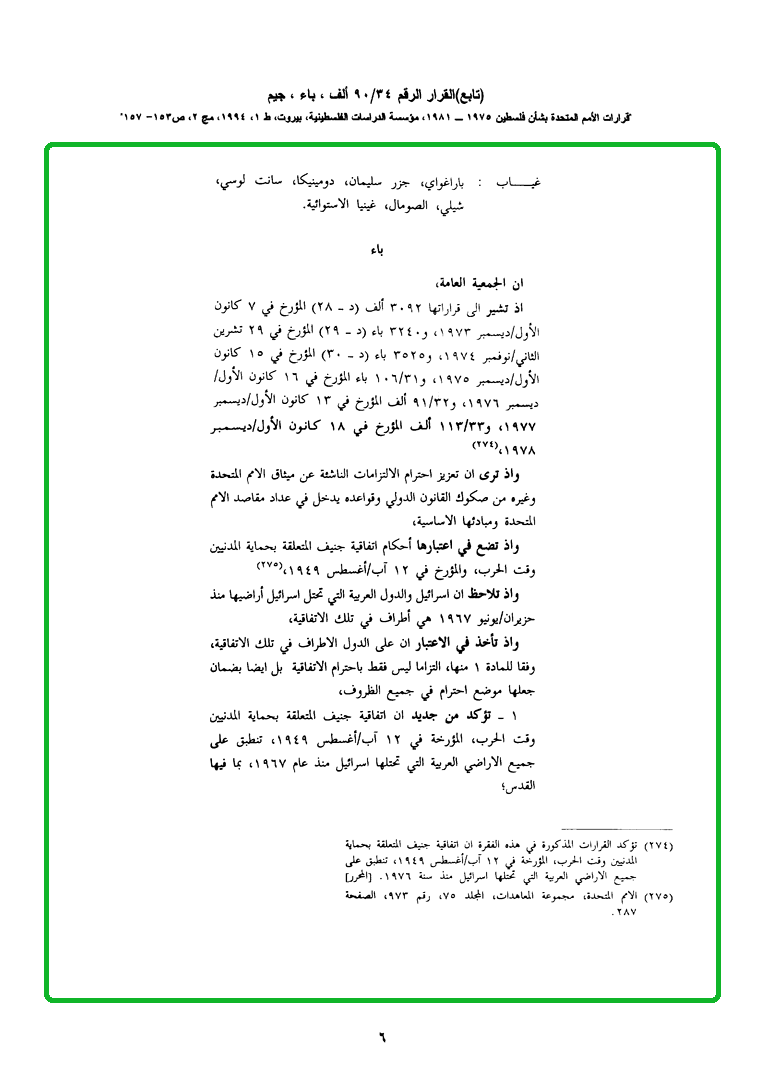 (تابع)القرار الرقم ٩٠/٣٤ ألف ، باء ، جيم
"قرارات الأمم المتحدة بشأن فلسطين ١٩٧٥ ــ ١٩٨١، مؤسسة الدراسات الفلسطينية، بيروت، ط ١، ١٩٩٤، مج ٢، ص١٥٣- ١٥٧"
غيـــاب : باراغواي، جزر سليمان، دومينيكا، سانت لوسي،
شيلي، الصومال، غينيا الاستوائية.
باء
ان الجمعية العامة،
اذ تشير الى قراراتها ٣٠٩٢ ألف (د - ٢٨) المؤرخ في ٧ كانون
الأول/ديسمبر ١٩٧٣، و٣٢٤٠ باء (د - ٢٩) المؤرخ في ٢٩ تشرين
الثاني/نوفمبر ١٩٧٤، و٣٥٢٥ باء (د - ٣٠) المؤرخ في ١٥ كانون
الأول/ديسمبر ١٩٧٥، و١٠٦/٣١ باء المؤرخ في ١٦ كانون الأول/
ديسمبر ١٩٧٦، و٩١/٣٢ ألف المؤرخ في ١٣ كانون الأول/ديسمبر
١٩٧٧، و١١٣/٣٣ ألف المؤرخ في ١٨ كانون الأول/ديسمبر
١٩٧٨،(٢٧٤)
واذ ترى ان تعزيز احترام الالتزامات الناشئة عن ميثاق الامم المتحدة
وغيره من صكوك القانون الدولي وقواعده يدخل في عداد مقاصد الامم
المتحدة ومبادئها الاساسية،
واذ تضع في اعتبارها أحكام اتفاقية جنيف المتعلقة بحماية المدنيين
وقت الحرب، والمؤرخ في ١٢ آب/أغسطس ١٩٤٩،(٢٧٥)
واذ تلاحظ ان اسرائيل والدول العربية التي تحتل اسرائيل أراضيها منذ
حزيران/يونيو ١٩٦٧ هي أطراف في تلك الاتفاقية،
واذ تأخذ في الاعتبار ان على الدول الاطراف في تلك الاتفاقية،
وفقا للمادة ١ منها، التزاما ليس فقط باحترام الاتفاقية بل ايضا بضمان
جعلها موضع احترام في جميع الظروف،
١ - تؤكد من جديد ان اتفاقية جنيف المتعلقة بحماية المدنيين
وقت الحرب، المؤرخة في ١٢ آب/أغسطس ١٩٤٩، تنطبق على
جميع الاراضي العربية التي تحتلها اسرائيل منذ عام ١٩٦٧، بما فيها
القدس؛
(٢٧٤) تؤكد القرارات المذكورة في هذه الفقرة ان اتفاقية جنيف المتعلقة بحماية
المدنيين وقت الحرب، المؤرخة في ١٢ آب/أغسطس ١٩٤٩، تنطبق على
جميع الاراضي العربية التي تحتلها اسرائيل منذ سنة ١٩٧٦. [المحرر]
(٢٧٥) الامم المتحدة، مجموعة المعاهدات، المجلد ٧٥، رقم ٩٧٣، الصفحة
٢٨٧.
٦